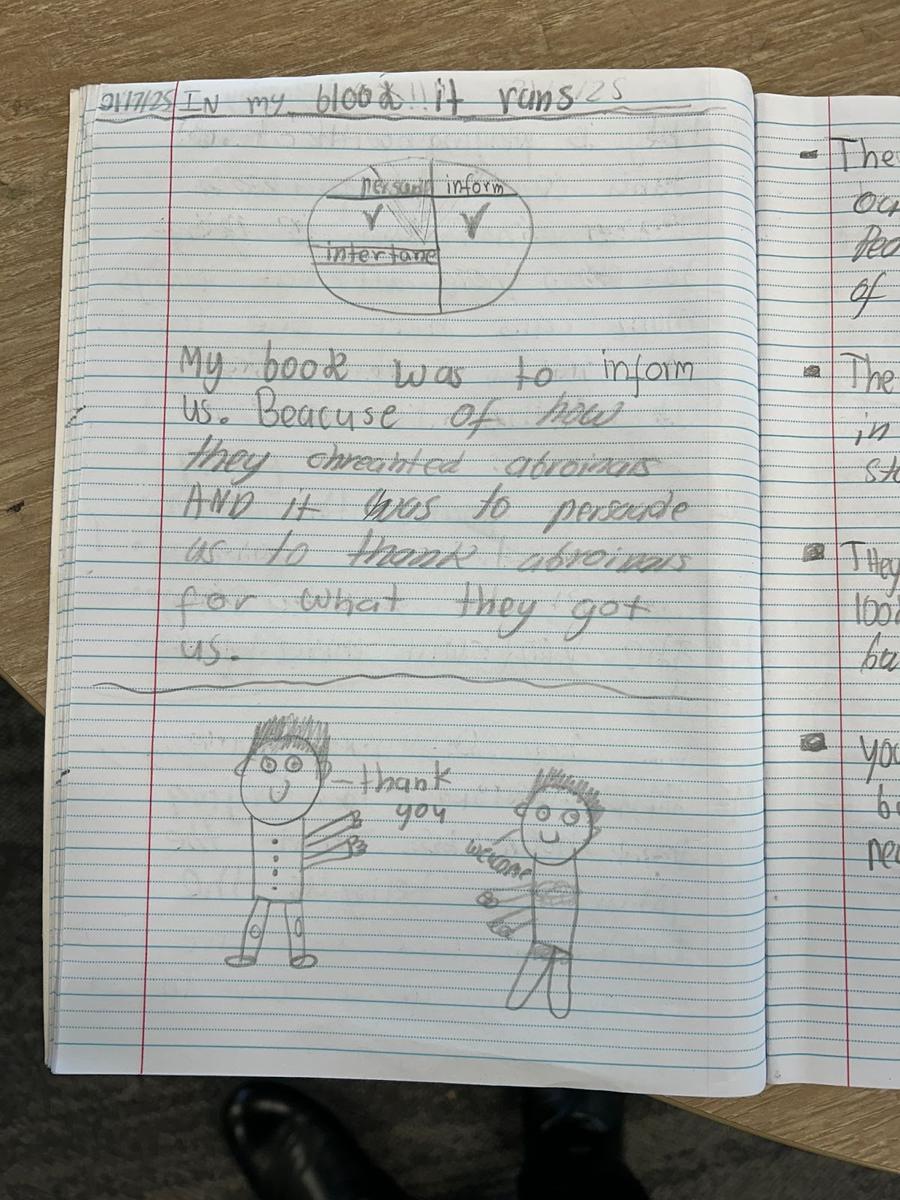 21/7/25 IN my blood!! it runs
persaud inform
intertane
My book was to inform
us. Beacuse of how
they chreahted abroinais
AND it was to persaude
us to thank abroinais
for what they got
us.
thank
you
welcome
- The
of
- The
in
- They
- you